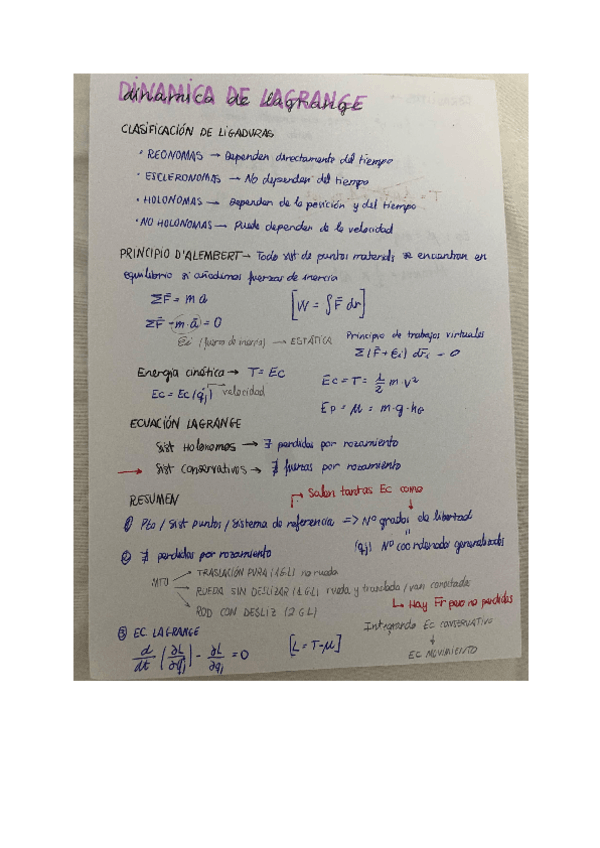 DINAMICA DE LAGRANGE
dinamica de lagrange
CLASIFICACIÓN DE LIGADURAS
· REONOMAS → Dependen directamente del tiempo
· ESCLERONOMAS → No dependen del tiempo
· HOLONOMAS → Dependen de la posición y del tiempo
· NO HOLONOMAS → Puede depender de la velocidad
PRINCIPIO D'ALEMBERT → Todo sist de puntos materials se encuentran en
equilibrio si añadimos fuerzas de inercia
ΣF̄ = m ā [W = ∫F̄ dr]
ΣF̄ - m·ā = 0
(fuerza de inercia) → ESTÁTICA
Principio de trabajos virtuales
Σ(F̄ + Ēi) dr̄i = 0
Energía cinética → T = Ec
Ec = T = 1/2 m·v²
Ec = Ec(q̇j) → velocidad
Ep = μ = m·g·hG
ECUACIÓN LAGRANGE
Sist Holonomos → ∃ perdidas por rozamiento
→ Sist Conservativos → ∄ fuerzas por rozamiento
RESUMEN
Salen tantas Ec como
① Pto / Sist puntos / Sistema de referencia => Nº grados de libertad
(qj) Nº coordenadas generalizadas
② ∄ perdidas por rozamiento
MTO
TRASLACIÓN PURA (1GL) no rueda
RUEDA SIN DESLIZAR (1GL) rueda y traslada / van conectadas
↳ Hay Fr pero no perdidas
ROD CON DESLIZ (2GL)
Integrando Ec conservativo
↓
EC MOVIMIENTO
③ EC LAGRANGE
d/dt (∂L/∂q̇j) - ∂L/∂qj = 0 [L = T-μ]